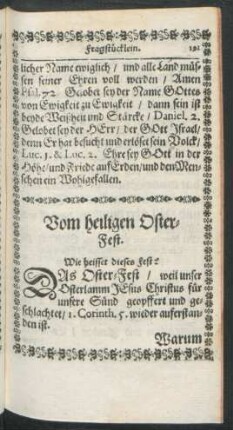 Fragstücklein.
licher Name ewiglich / und alle Land müs-
sen seiner Ehren voll werden / Amen
Psal. 72 Gelobet sey der Name GOttes
von Ewigkeit zu Ewigkeit / dann sein ist
beyde Weißheit und Stärcke / Daniel. 2.
Gelobet sey der HErr / der GOtt Israel/
denn Er hat besucht und erlöset sein Volck/
Luc. 1. & Luc. 2. Ehre sey GOtt in der
Höhe/und Friede auf Erden/und den Men-
schen ein Wohlgefallen.
Vom heiligen Oster-
Fest.
Wie heisset dieses Fest?
DAs Oster-Fest / weil unser
Osterlamm JEsus Christus für
unsere Sünd geopffert und ge-
schlachtet/ 1. Corinth. 5. wieder auferstan-
den ist.
Warum